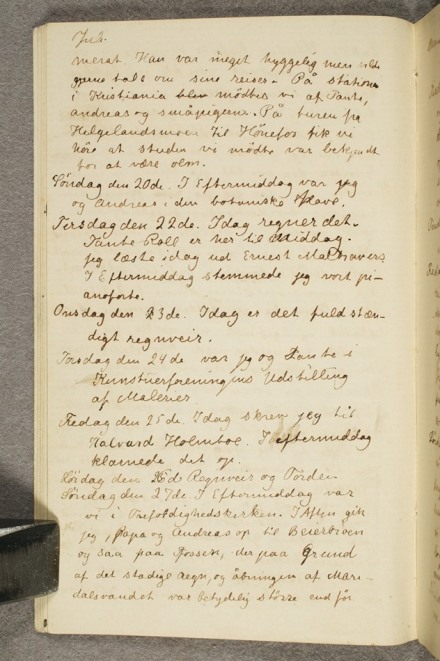 Juli.
merat. Han var meget hyggelig men vilde
gjerne tale om sine reiser. På stationen
i Kristiania blev mødtes vi af Tante,
Andreas og småpigerne. På turen fra
Helgelandsmoen til Hönefos fik vi
höre at studen vi mødte var bekjendt
for at være olm.
Söndag den 20de. I Eftermiddag var jeg
og Andreas i den botaniske Have.
Tirsdag den 22de. Idag regner det.
Tante Roll er her til Middag.
jeg læste idag ud Ernest Maltravers
I Eftermiddag stemmede jeg vort pi-
anoforte.
Onsdag den 23de. Idag er det fuldstæn-
digt regnveir.
Torsdag den 24de var jeg og Tante i
Kunstnerforeningens Udstilling
af Malerier
Fredag den 25de. Idag skrev jeg til
Halvard Holmboe. I eftermiddag
klarnede det op.
Lördag den 26d Regnveir og Torden
Söndag den 27de. I Eftermiddag var
vi i Trefoldighedskirken. I Aften gik
jeg, Papa og Andreas op til Beierbroen
og saa paa Fossen, der paa Grund
af det stadige Regn, og åbningen af Mari-
dalsvandet var betydelig större end för